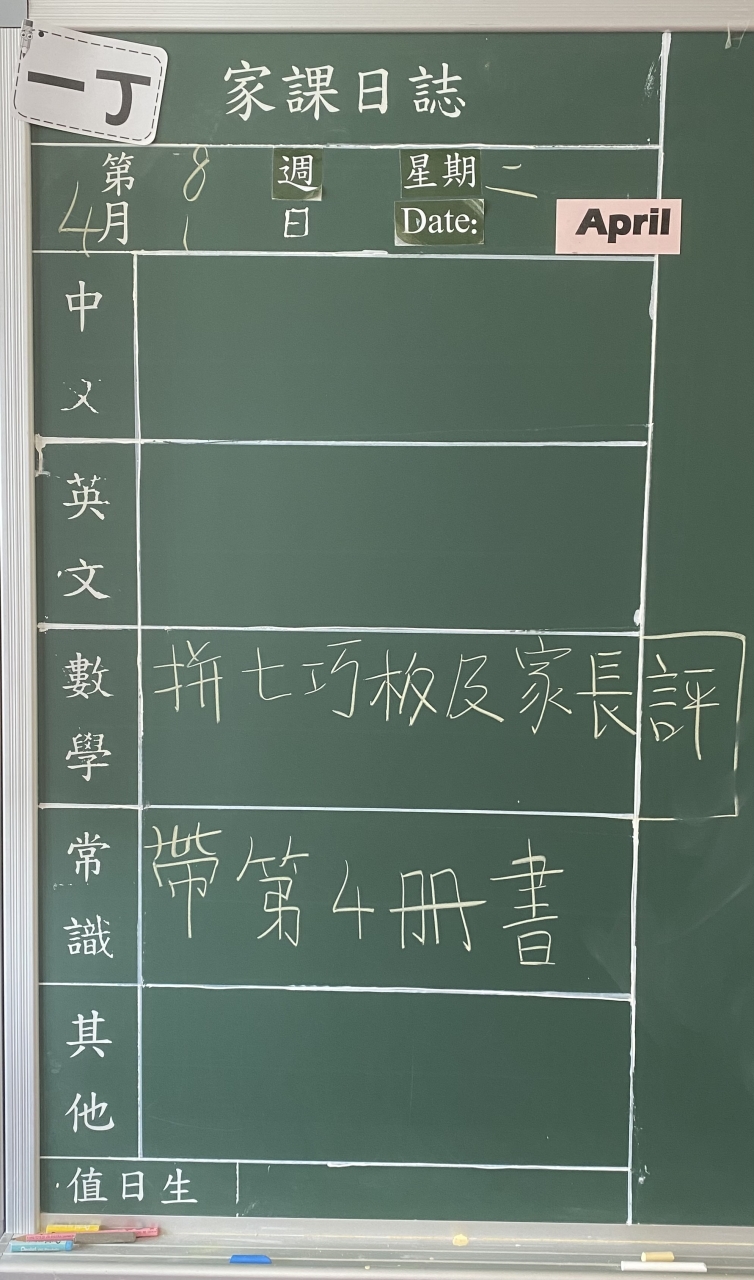 一丁
家課日誌
第8週 星期二
4月1日 Date: April
中文
英文
數學 拼七巧板及家長評
常識 帶第4冊書
其他
值日生